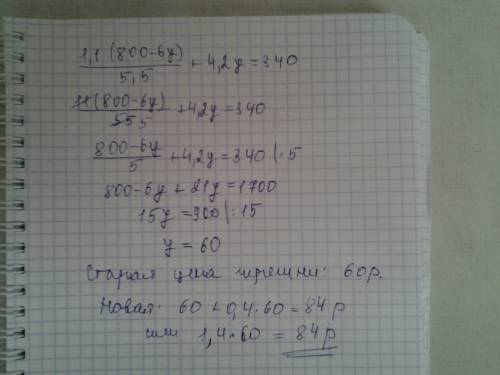 1,1(800-6y)/5,5 + 4,2y = 340
11(800-6y)/55 5 + 4,2y = 340
800-6y/5 + 4,2y = 340 |·5
800-6y + 21y = 1700
15y = 900 |:15
y = 60
Старая цена черешни: 60р.
Новая: 60 + 0,4·60 = 84р
или 1,4·60 = 84р